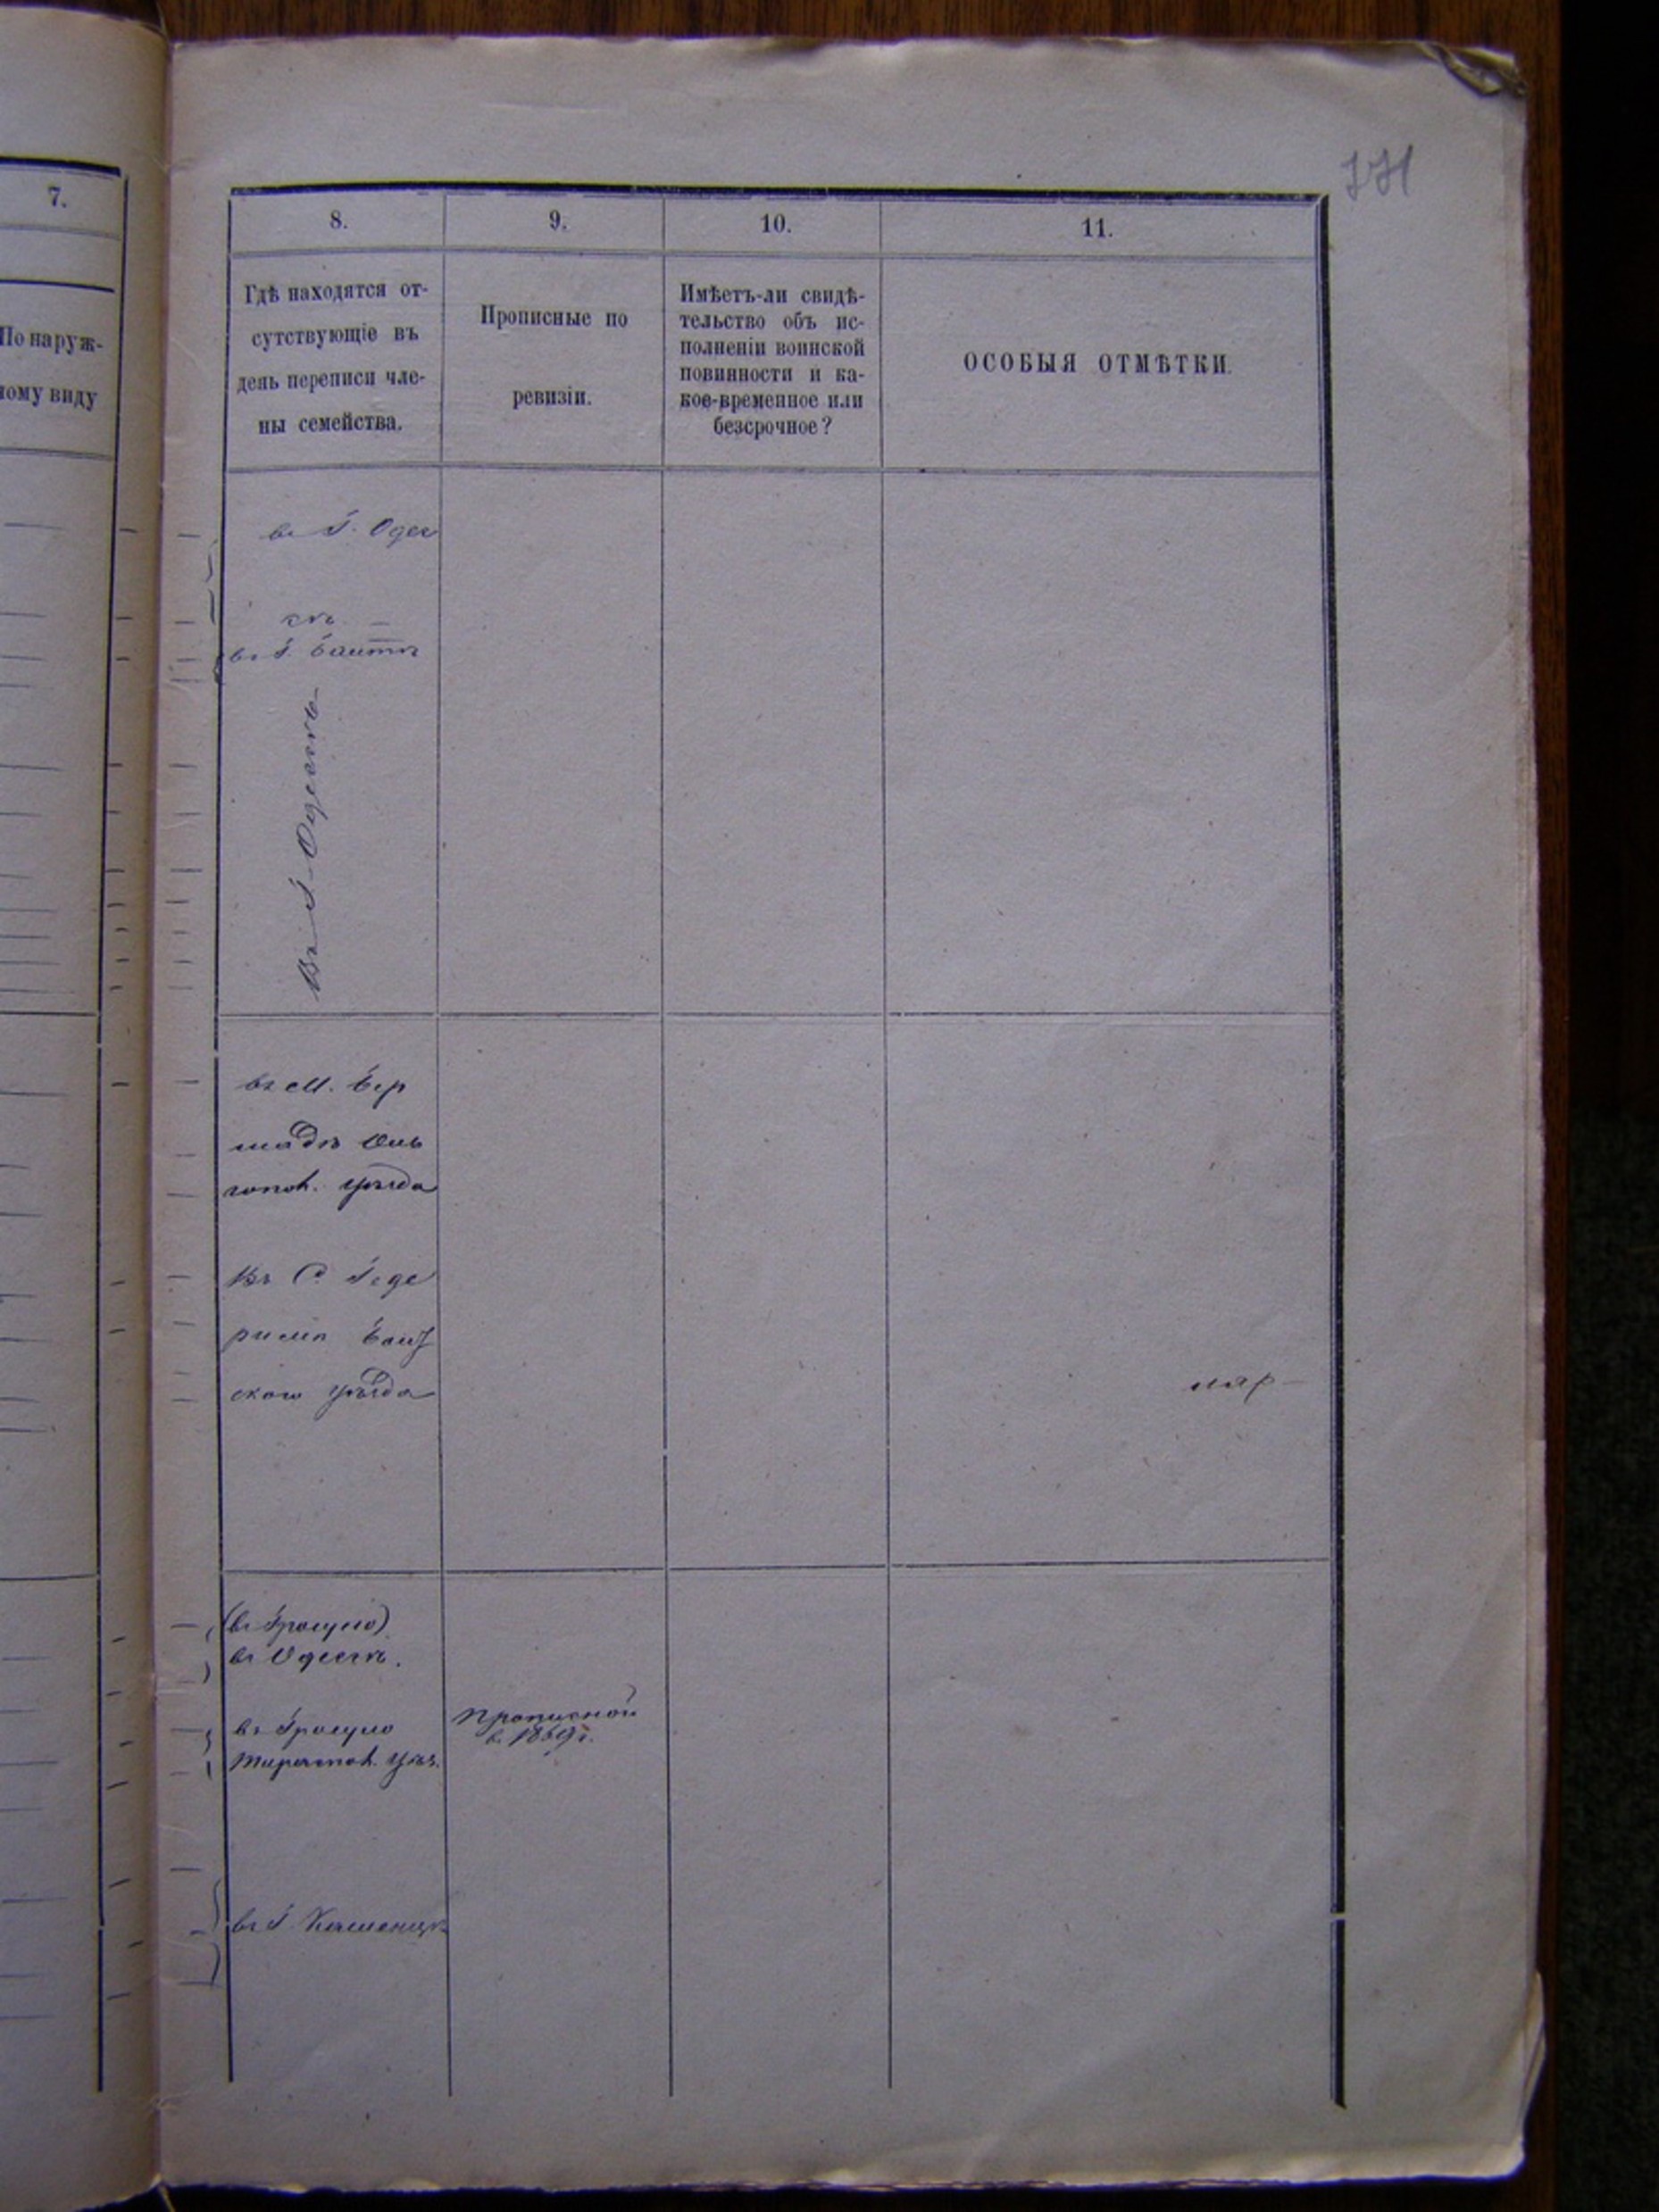 771
7.
По наруж-
ному виду
8.
9.
10.
11.
Гдѣ находятся от-
сутствующіе въ
день переписи чле-
ны семейства.
Прописные по
ревизіи.
Имѣетъ-ли свидѣ-
тельство объ ис-
полненіи воинской
повинности и ка-
кое-временное или
безсрочное?
ОСОБЫЯ ОТМѢТКИ.
въ Г. Одес
скѣ
въ Г. Балтѣ
Въ Г. Одессѣ
въ М. Бер
шадѣ Оль
гопол. уѣзда
Въ С. Геде
римѣ Балт
скаго уѣзда
(въ Гроцко)
въ Одессѣ.
въ Гроцко
Тираспол. уѣз.
прописной
в. 1869 г.
въ Г. Каменцѣ